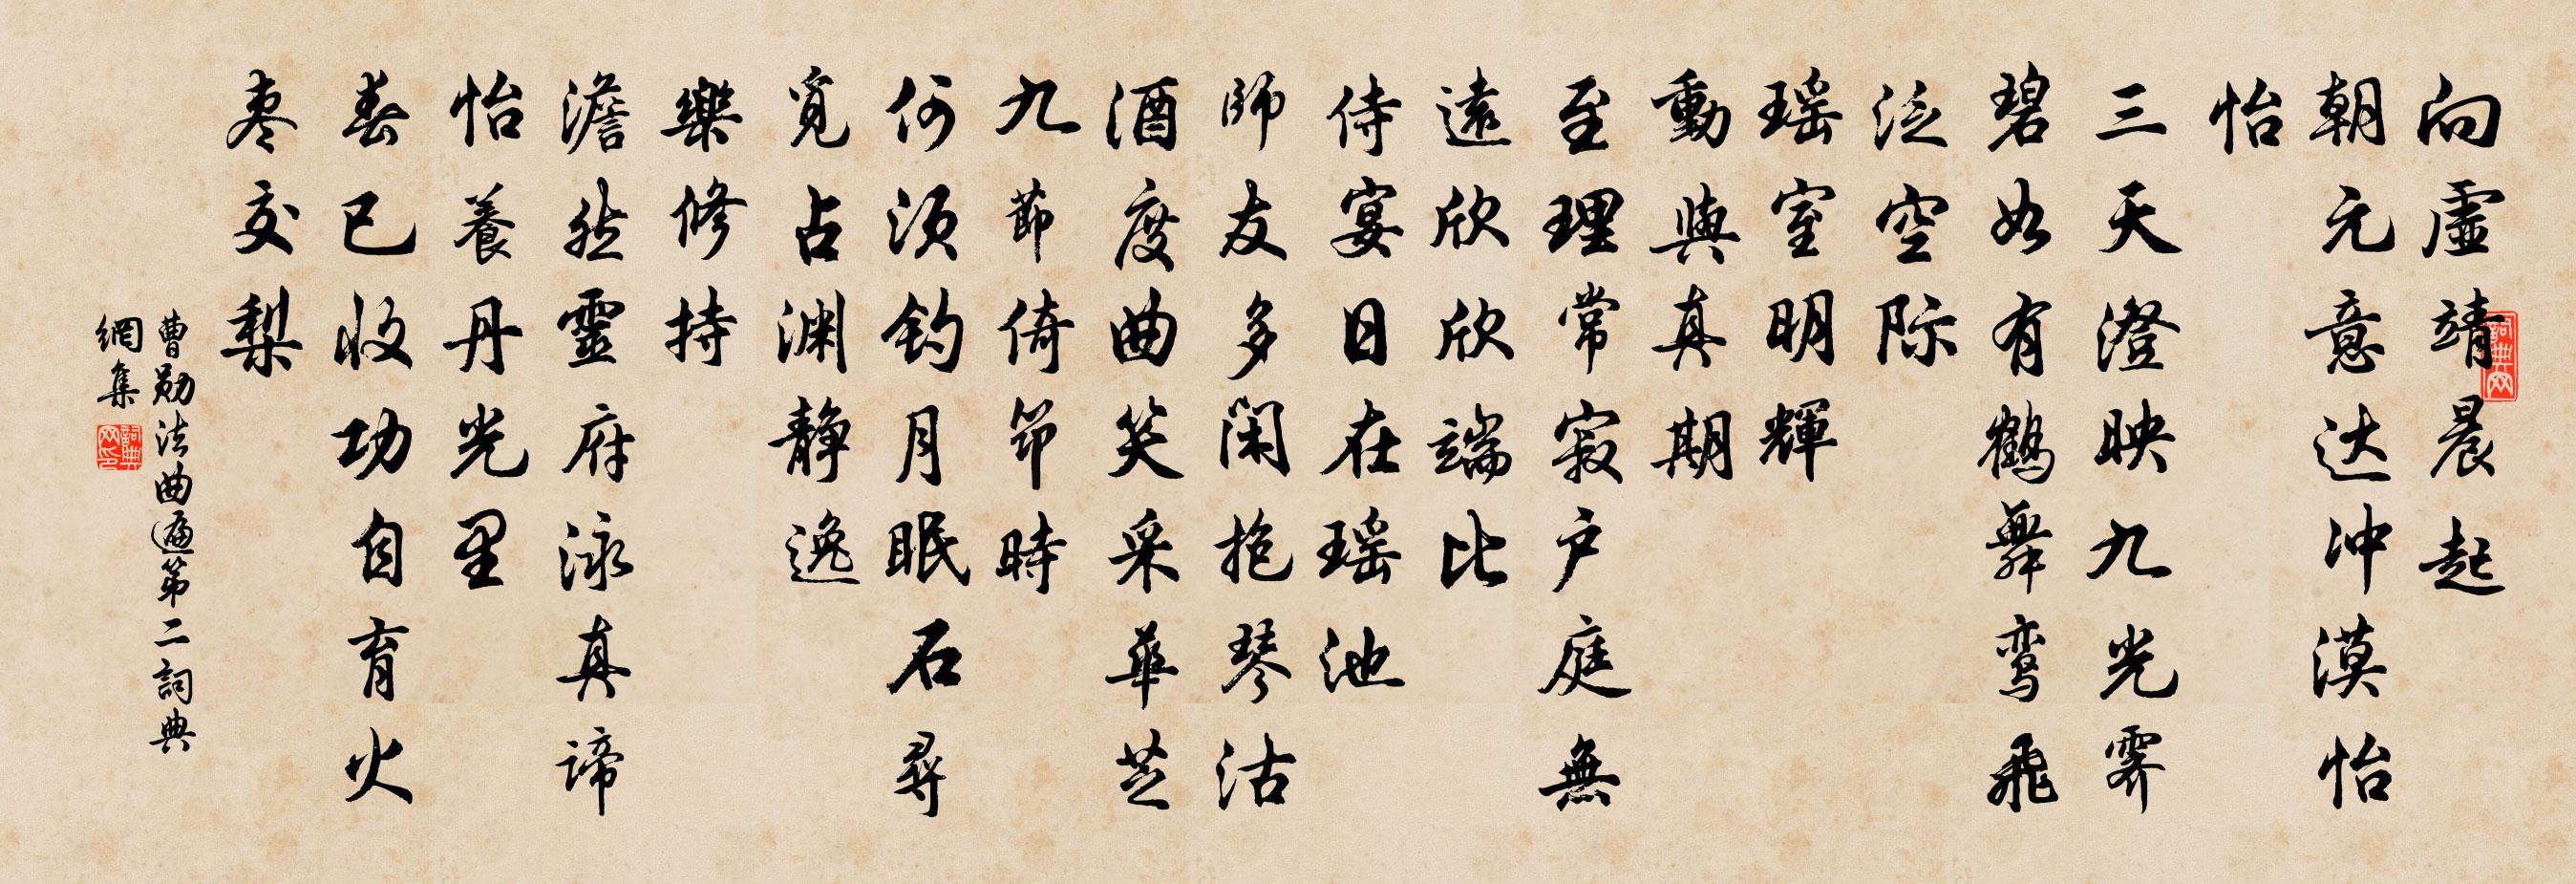 向虛靖晨起
朝元意达冲漠怡
怡
三天澄映九光霁
碧如有鹤舞鸾飛
泛空际
瑶室明輝
動與真期
至理常寂户庭無
遠欣欣端比
侍宴日在瑶池
師友多闲抱琴沽
酒度曲笑采華芝
九節倚筇時
何须钓月眠石尋
覓占渊静逸
樂修持
澹然靈府泳真諦
怡養丹光里
春已收功自育火
枣交梨
曹勋法曲遍第二詞典
網集